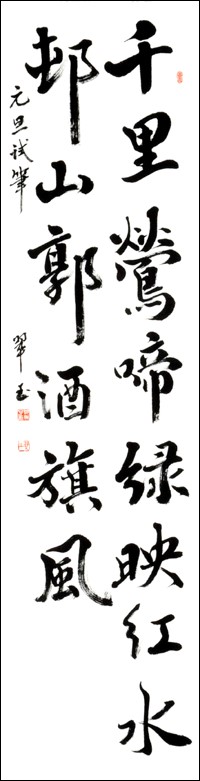 千里鶯啼緑映紅水
邨山郭酒旗風
元旦試筆 翠玉